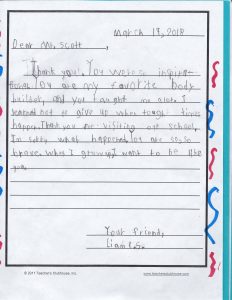 March 19, 2018
Dear Mr. Scott,
Thank you! You were so inspira-
tional You are my favorite body
builder, and you taught me alot. I
learned not to give up when tough times
happen. Thank you for visiting our school.
I'm sorry what happened. You are so, so
brave. When I grow up I want to be like
you.
Your friend,
Liam S.
© 2011 Teacher's Clubhouse, Inc.
www.teachersclubhouse.com